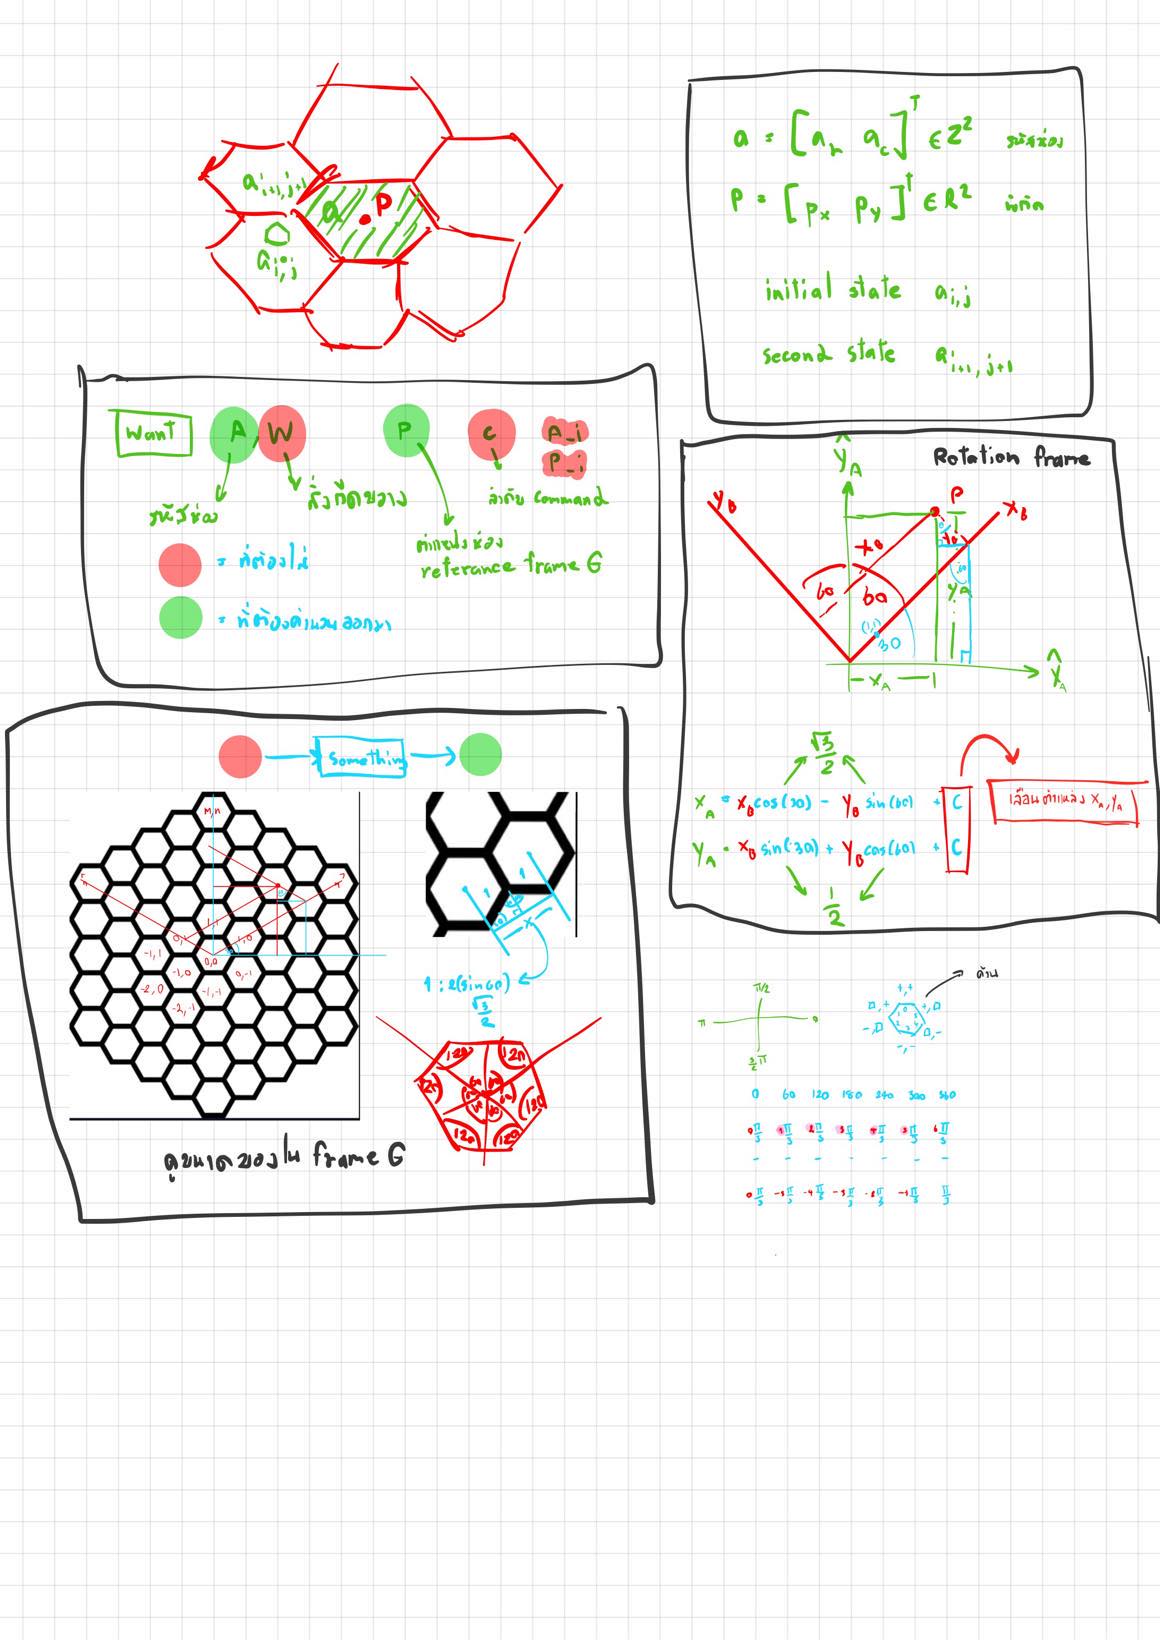 a_{i+1,j+1}
a
P
a_{i,j}
a = [a_r a_c]^T ∈ Z^2 รหัสช่อง
P = [p_x p_y]^T ∈ R^2 พิกัด
initial state a_{i,j}
second state a_{i+1,j+1}
Want A, W P C A_i
P_i
รหัสช่อง
สิ่งกีดขวาง
ตำแหน่งช่อง
referance frame G
ลำดับ Command
= ที่ต้องใส่
= ที่ต้องคำนวนออกมา
Rotation frame
Ŷ_A
Y_B
P
X_B
60
60
30
Y_A
X_A
X̂_A
√3/2
X_A = X_B cos(30) - Y_B sin(60) + C
Y_A = X_B sin(30) + Y_B cos(60) + C
เลื่อนตำแหน่ง X_A, Y_A
1/2
Something
M,n
1,1
0,1
1,0
0,0
-1,1
-1,0
0,-1
-2,0
-1,-1
-2,-1
1
1
x
1 : 2(sin60)
√3/2
120
120
120
120
120
120
ดูขนาดของใน frame G
π/2
π
0
3/2 π
ด้าน
+,+
-,-
0 60 120 180 240 300 360
0π/3 1π/3 2π/3 3π/3 4π/3 5π/3 6π/3
- - - - - - -